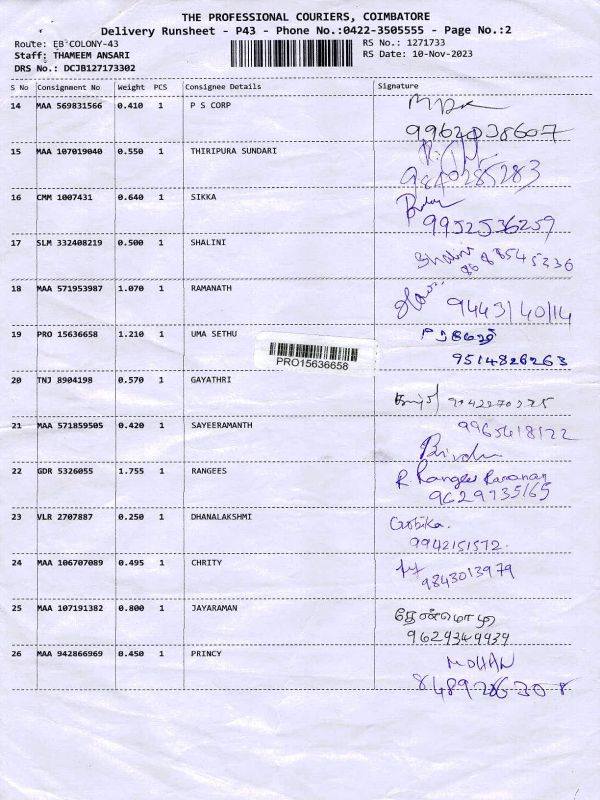 THE PROFESSIONAL COURIERS, COIMBATORE
Delivery Runsheet - P43 - Phone No.:0422-3505555 - Page No.:2
Route: EB COLONY-43 RS No.: 1271733
Staff: THAMEEM ANSARI RS Date: 10-Nov-2023
DRS No.: DCJB127173302
S No Consignment No Weight PCS Consignee Details Signature
14 MAA 569831566 0.410 1 P S CORP
15 MAA 107019040 0.550 1 THIRIPURA SUNDARI
9840285283
16 CMM 1007431 0.640 1 SIKKA
9952536259
17 SLM 332408219 0.500 1 SHALINI Shalini
18 MAA 571953987 1.070 1 RAMANATH
9443140114
19 PRO 15636658 1.210 1 UMA SETHU
PRO15636658
9514826263
20 TNJ 8904198 0.570 1 GAYATHRI
21 MAA 571859505 0.420 1 SAYEERAMANTH 9965418122
22 GDR 5326055 1.755 1 RANGEES R Rangees
9629735165
23 VLR 2707887 0.250 1 DHANALAKSHMI Gobika.
9942151572.
24 MAA 106707089 0.495 1 CHRITY
9843013979
25 MAA 107191382 0.800 1 JAYARAMAN தேன்மொழி
9629349939
26 MAA 942866969 0.450 1 PRINCY MOHAN